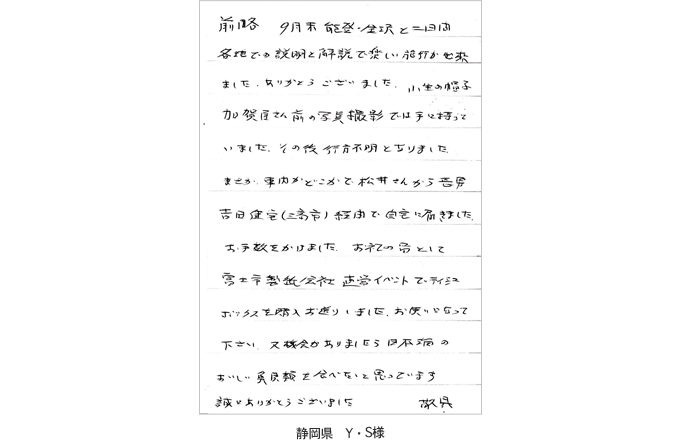 前略　9月末 能登・金沢と二日間
各地での説明と解説で楽しい旅行が出来
ました。ありがとうございました。小生の帽子
加賀屋さん前の写真撮影では手に持って
いました。その後行方不明となりました
まさか、車内かどこかで 松井さんから
吉田 (三島市) 経由で自宅に届きました。
お手数をかけました。お礼の
富士市製紙会社 直営イベントでティシュ
ボックスを購入お送りしました。お使いになって
下さい。又機会がありましたら日本海の
おいしい魚貝類を食べたいと思っています
誠にありがとうございました　　敬具
静岡県　Y・S様